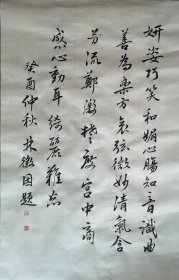 妍姿巧笑和媚心腸知音識曲
善為樂方哀弦微妙清氣含
芳流鄭激楚度宮中商
感心動耳綺麗難忘
癸酉仲秋 林徽因題